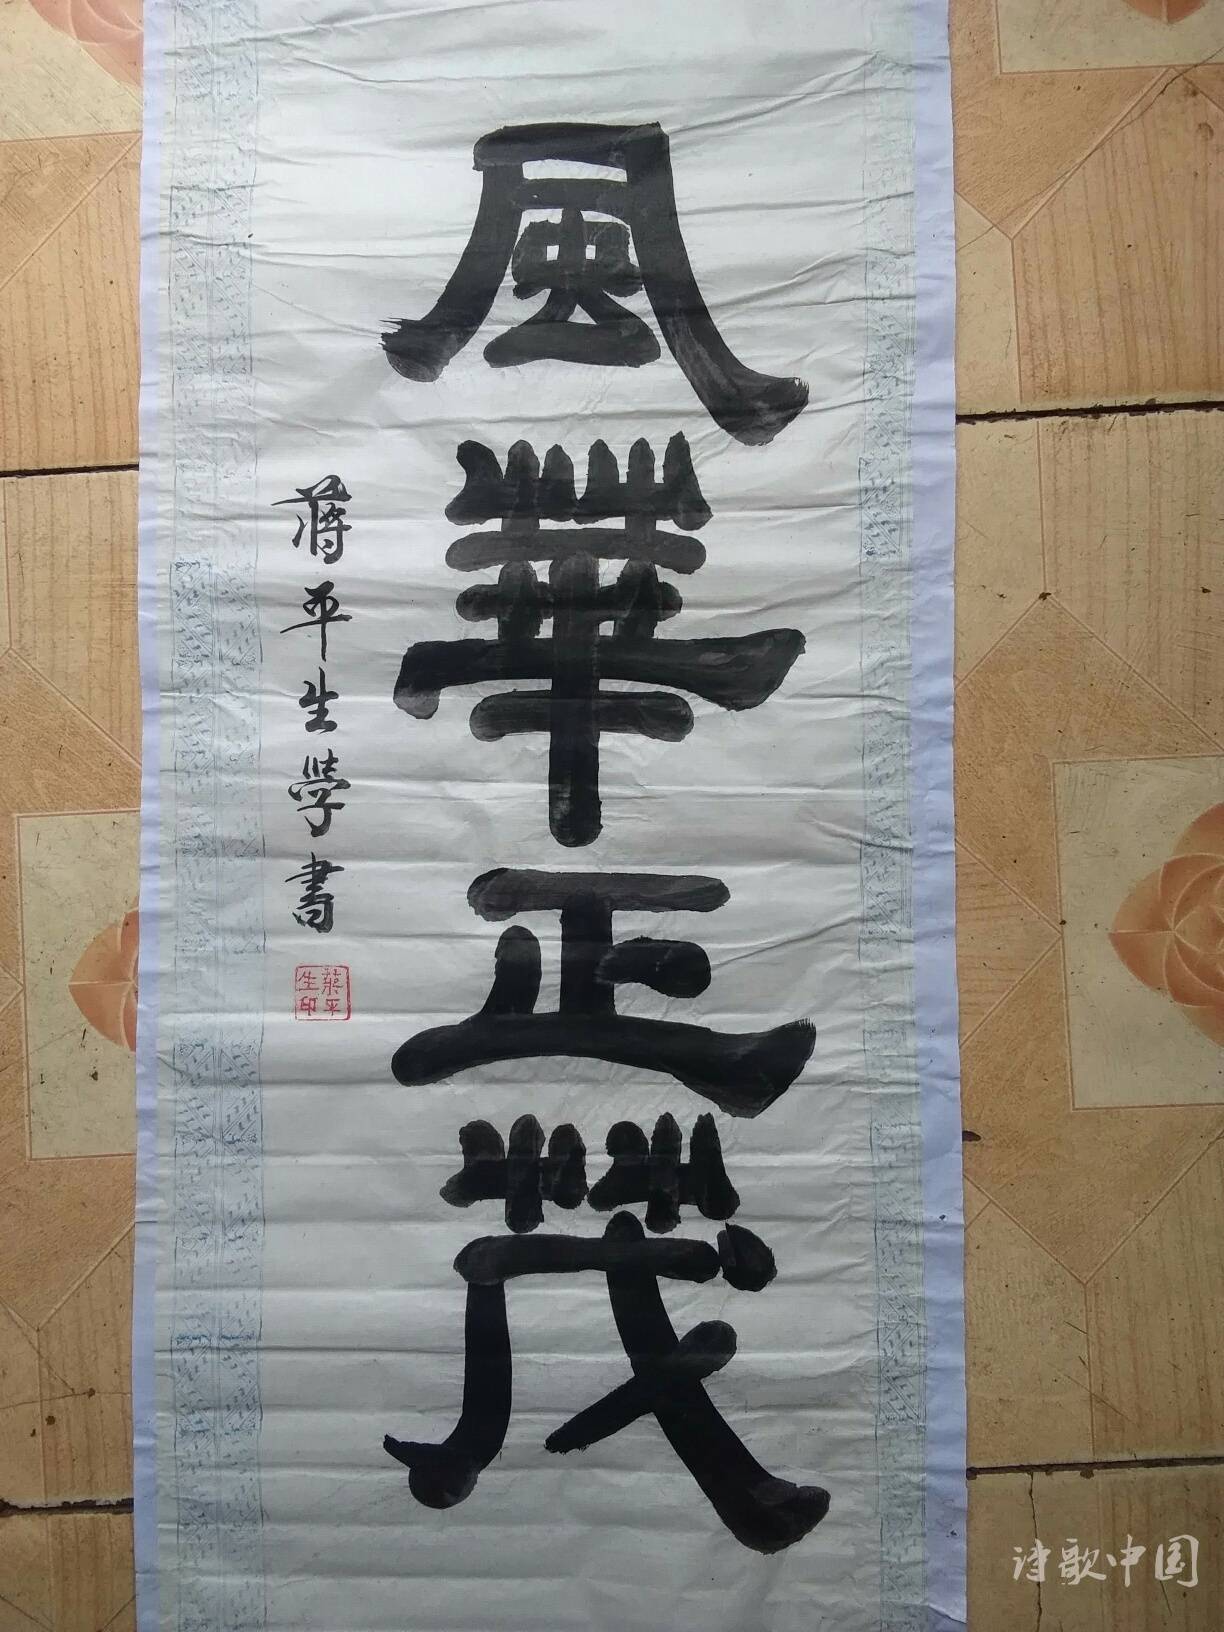 風華正茂
蒋平生學書
蔣平
生印
诗歌中国